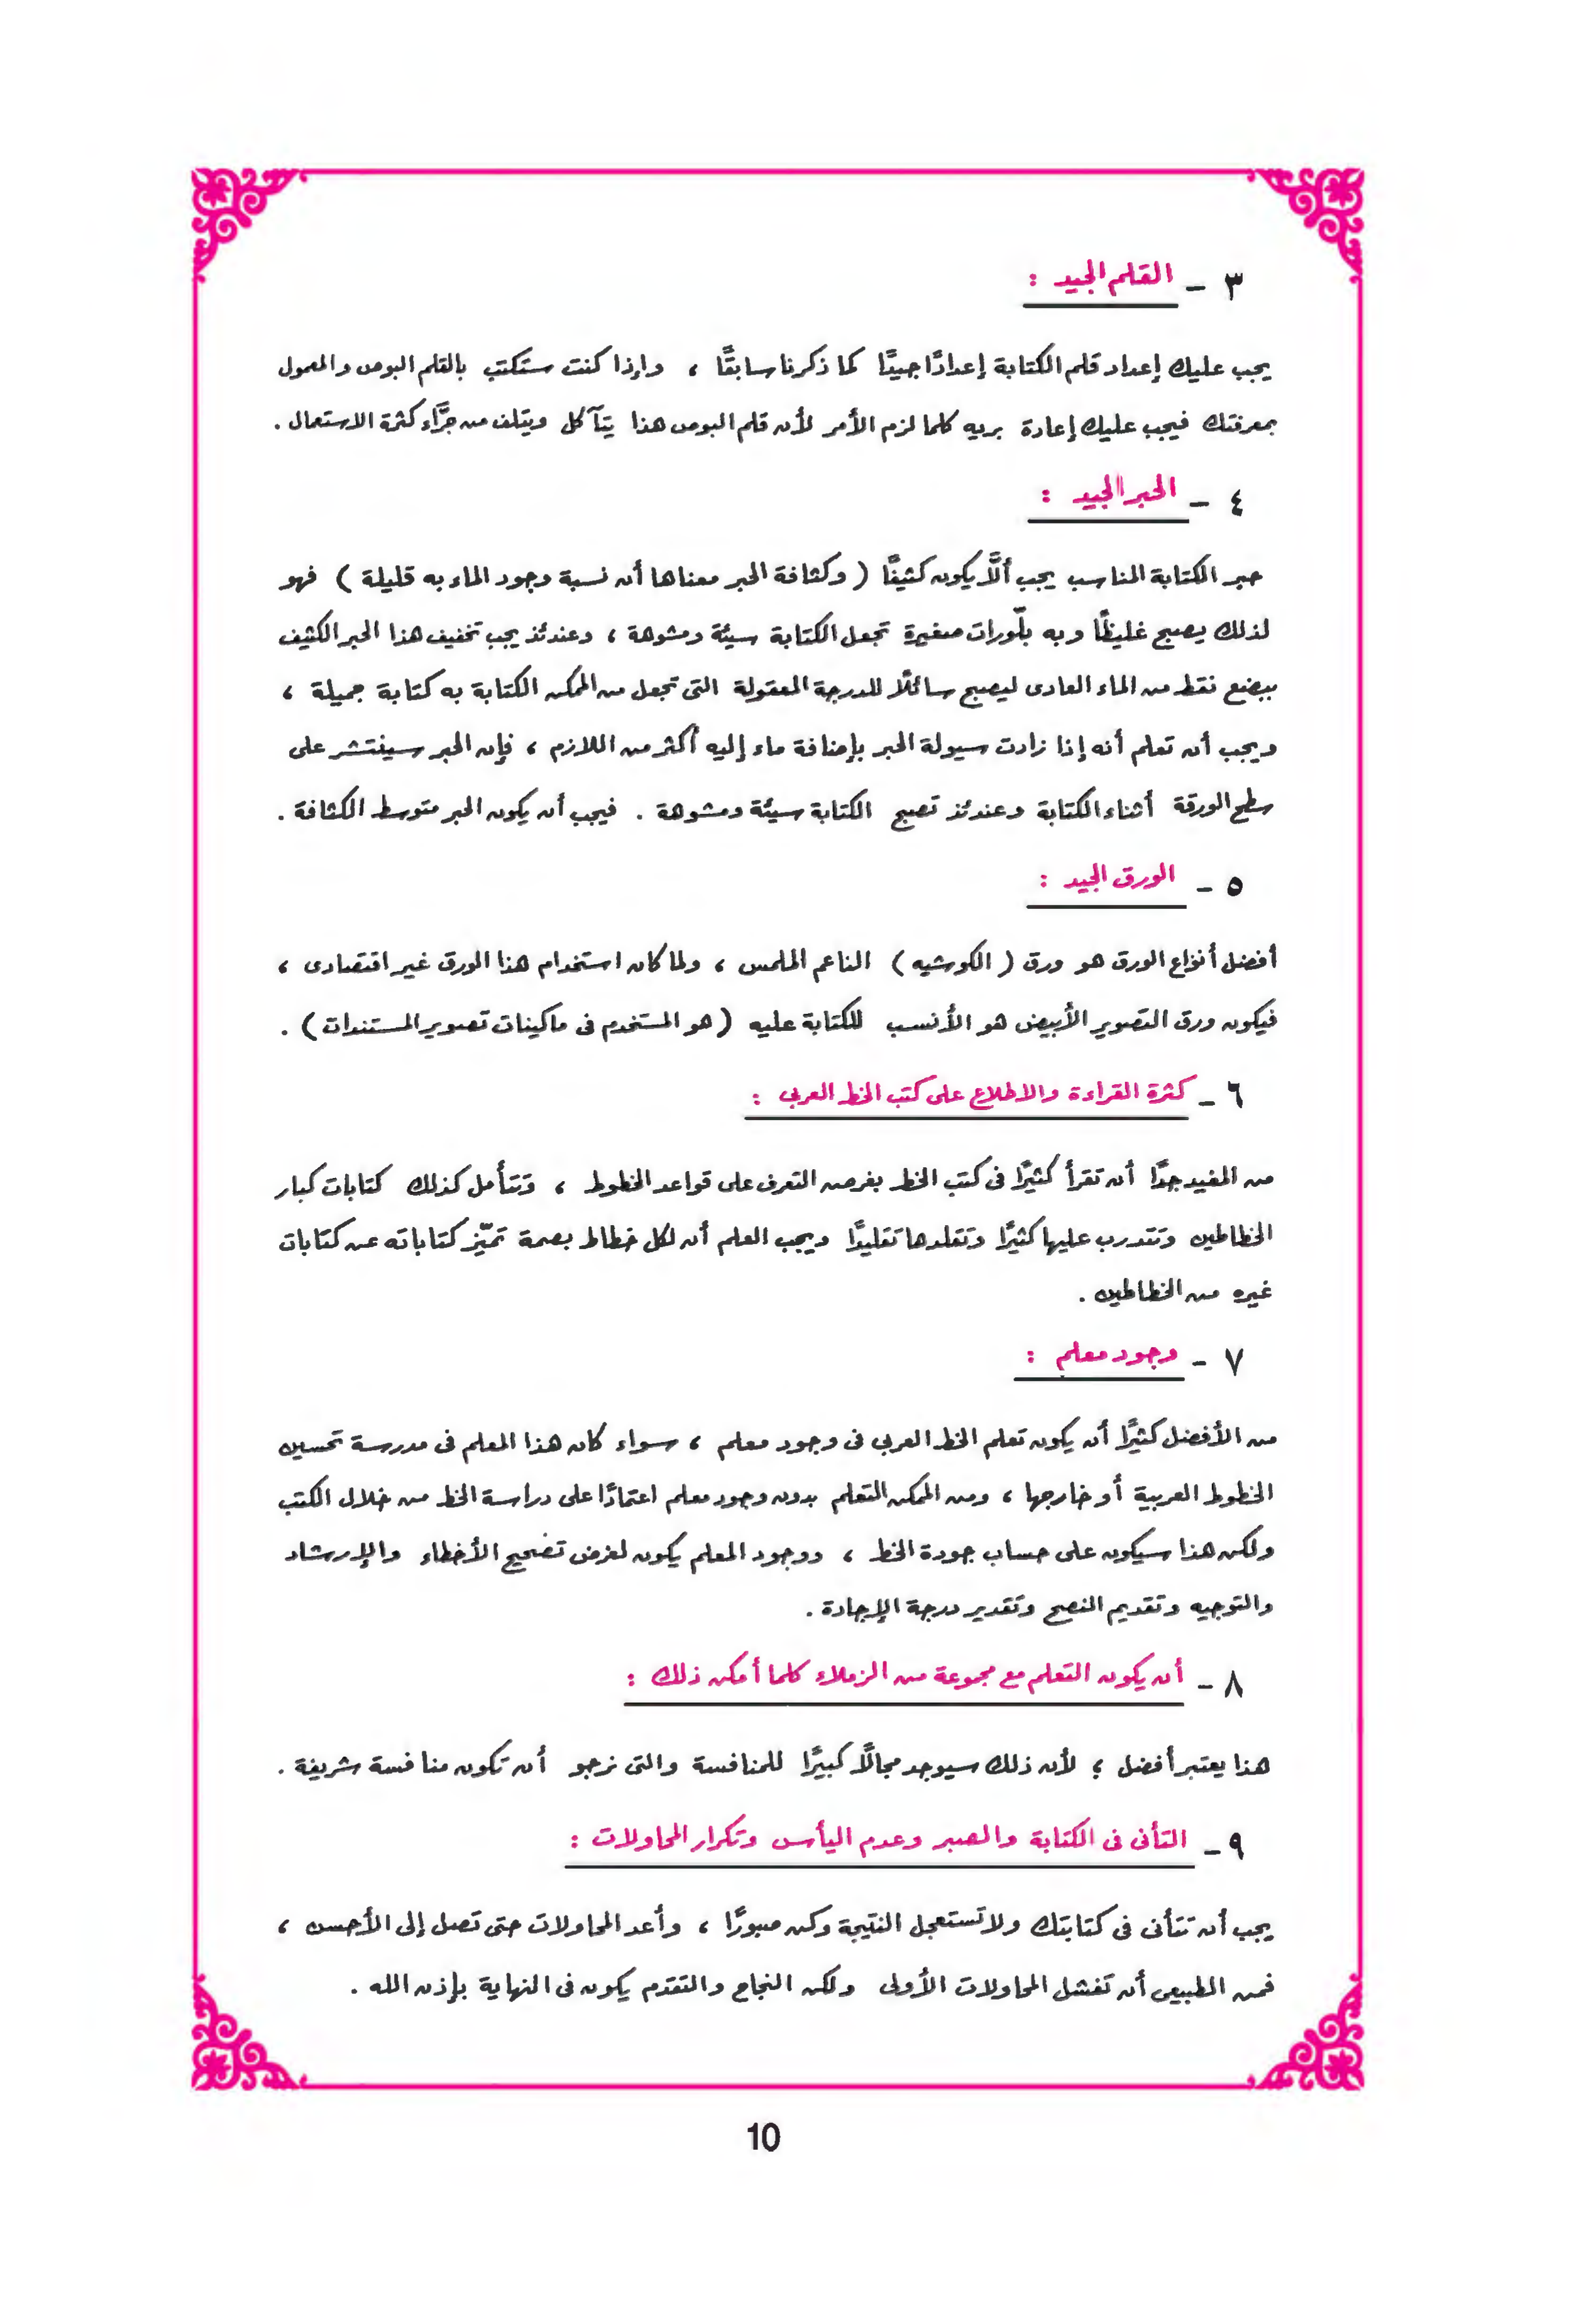 ٣ - القلم الجيد :
يجب عليك إعداد قلم الكتابة إعدادًا جيدًا كما ذكرنا سابقًا ، وإذا كنت ستكتب بالقلم البوص والمعمول
بمعرفتك فيجب عليك إعادة بريه كلما لزم الأمر لأن قلم البوص هذا يتآكل ويتلف من جرَّاء كثرة الاستعمال .
٤ - الحبر الجيد :
حبر الكتابة المناسب يجب ألَّا يكون كثيفًا ( وكثافة الحبر معناها أن نسبة وجود الماء به قليلة ) فهو
لذلك يصبح غليظًا وبه بلّورات صغيرة تجعل الكتابة سيئة ومشوهة ، وعندئذ يجب تخفيف هذا الحبر الكثيف
ببضع نقط من الماء العادى ليصبح سائلًا للدرجة المعقولة التى تجعل من الممكن الكتابة به كتابة جميلة ،
ويجب أن تعلم أنه إذا زادت سيولة الحبر بإضافة ماء إليه أكثر من اللازم ، فإن الحبر سينتشر على
سطح الورقة أثناء الكتابة وعندئذ تصبح الكتابة سيئة ومشوهة . فيجب أن يكون الحبر متوسط الكثافة .
٥ - الورق الجيد :
أفضل أنواع الورق هو ورق ( الكوشيه ) الناعم الملمس ، ولما كان استخدام هذا الورق غير اقتصادى ،
فيكون ورق التصوير الأبيض هو الأنسب للكتابة عليه ( هو المستخدم فى ماكينات تصوير المستندات ) .
٦ - كثرة القراءة والاطلاع على كتب الخط العربى :
من المفيد جدًا أن تقرأ كثيرًا فى كتب الخط بغرض التعرف على قواعد الخطوط ، وتتأمل كذلك كتابات كبار
الخطاطين وتتدرب عليها كثيرًا وتقلدها تقليدًا ويجب العلم أن لكل خطاط بصمة تميّز كتاباته عن كتابات
غيره من الخطاطين .
٧ - وجود معلم :
من الأفضل كثيرًا أن يكون تعلم الخط العربى فى وجود معلم ، سواء كان هذا المعلم فى مدرسة تحسين
الخطوط العربية أو خارجها ، ومن الممكن التعلم بدون وجود معلم اعتمادًا على دراسة الخط من خلال الكتب
ولكن هذا سيكون على حساب جودة الخط ، ووجود المعلم يكون لغرض تصحيح الأخطاء والإرشاد
والتوجيه وتقديم النصح وتقدير درجة الإجادة .
٨ - أن يكون التعلم مع مجموعة من الزملاء كلما أمكن ذلك :
هذا يعتبر أفضل ؛ لأن ذلك سيوجد مجالًا كبيرًا للمنافسة والتى نرجو أن تكون منافسة شريفة .
٩ - التأنى فى الكتابة والصبر وعدم اليأس وتكرار المحاولات :
يجب أن تتأنى فى كتابتك ولا تستعجل النتيجة وكن صبورًا ، وأعد المحاولات حتى تصل إلى الأحسن ،
فمن الطبيعى أن تفشل المحاولات الأولى ولكن النجاح والتقدم يكون فى النهاية بإذن الله .
10